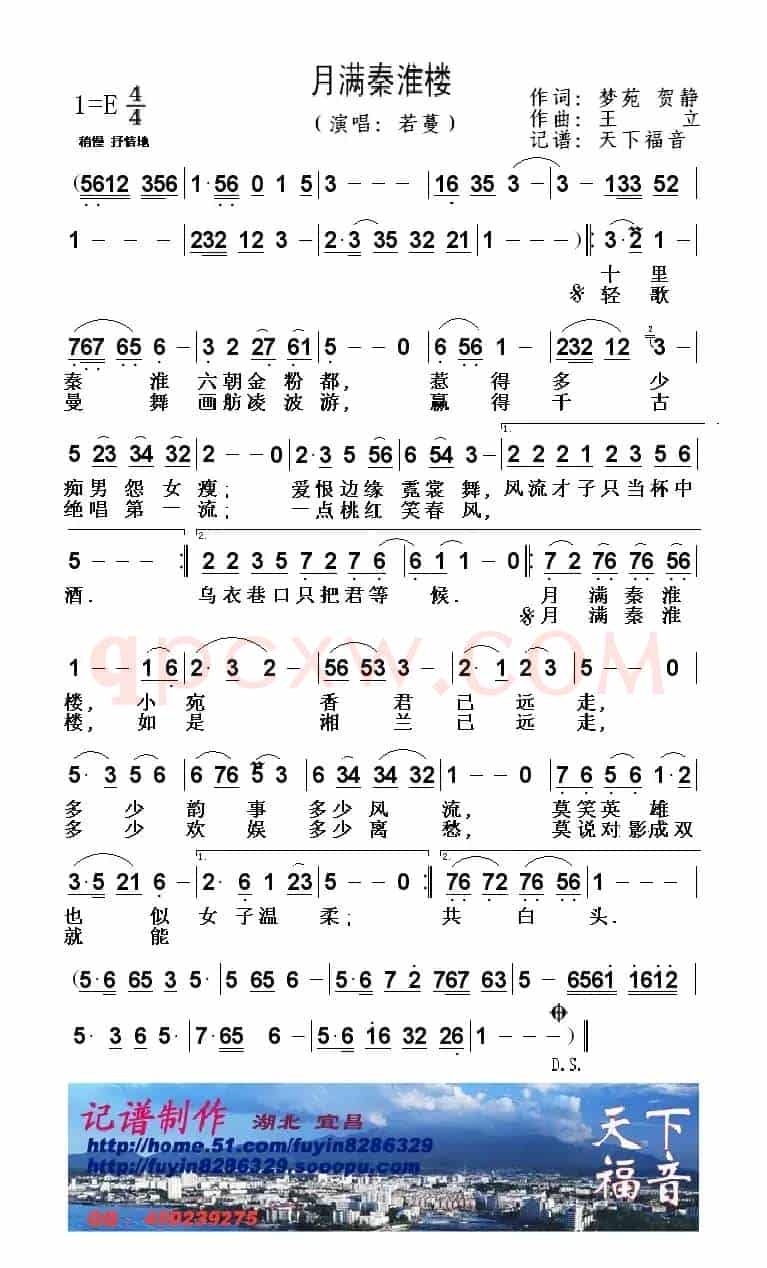 月满秦淮楼
1=E 4/4
(演唱: 若蔓)
作词: 梦苑 贺静
作曲: 王 立
记谱: 天下福音
稍慢 抒情地
(5612 356 | 1·56 0 1 5 | 3 - - - | 16 35 3 - | 3 - 133 52 |
1 - - - | 232 12 3 - | 2·3 35 32 21 | 1 - - - ) ‖: 3·2 1 - |
十 里
轻 歌
767 65 6 - | 3 2 27 61 | 5 - - 0 | 6 56 1 - | 232 12 3 - |
秦 淮 六朝金 粉都, 惹 得 多 少
曼 舞 画舫凌 波游, 赢 得 千 古
5 23 34 32 | 2 - - 0 | 2·3 5 56 | 6 54 3 - | 1. 2 2 2 1 2 3 5 6 |
痴男 怨 女 瘦; 爱恨边缘 霓裳 舞, 风流才子只当杯中
绝唱 第 一 流; 一点桃红 笑春 风,
5 - - - :‖ 2. 2 2 3 5 7 2 7 6 | 6 1 1 - 0 ‖: 7 2 76 76 56 |
酒. 乌衣巷口只把君等 候. 月 满秦淮
月 满秦淮
1 - - 1 6 | 2· 3 2 - | 56 53 3 - | 2· 1 2 3 | 5 - - 0 |
楼, 小 宛 香 君 已 远 走,
楼, 如 是 湘 兰 已 远 走,
5· 3 5 6 | 6 76 5 3 | 6 34 34 32 | 1 - - 0 | 7 6 5 6 1·2 |
多 少 韵 事 多少风 流, 莫笑英 雄
多 少 欢 娱 多少离 愁, 莫说对影成双
3·5 21 6 - | 1. 2· 6 1 23 | 5 - - 0 :‖ 2. 76 72 76 56 | 1 - - - |
也 似 女 子温 柔; 共 白 头.
就 能
(5·6 65 3 5 | 5·6 32 1 - | 5·6 7 2 767 63 | 5 - 6561 1612 |
5· 3 6 5 | 7·65 6 - | 5·6 16 32 26 | 1 - - - ) ‖
D.S.
记谱制作 湖北 宜昌
http://home.51.com/fuyin8286329
http://fuyin8286329.sooopu.com
QQ: 490239275
天下
福音
qpcxw.COM